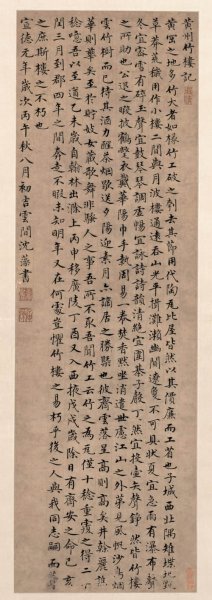 黃州竹樓記
黃岡之地多竹大者如椽竹工破之刳去其節用代陶瓦比屋皆然以其價廉而工省也子城西北隅雉堞圮毀
蓁莽荒穢因作小樓二間與月波樓通遠吞山光平挹江瀨幽闃遼夐不可具狀夏宜急雨有瀑布聲
冬宜密雪有碎玉聲宜鼓琴琴調虛暢宜詠詩詩韻清絕宜圍棋子聲丁丁然宜投壺矢聲錚錚然皆竹樓
之所助也公退之暇披鶴氅衣戴華陽巾手執周易一卷焚香默坐消遣世慮江山之外第見風帆沙鳥煙
雲竹樹而已待其酒力醒茶煙歇送夕陽迎素月亦謫居之勝概也彼齊雲落星高則高矣井幹麗譙
華則華矣止於貯妓女藏歌舞非騷人之事吾所不取吾聞竹工云竹之為瓦僅十稔重覆之得二十
稔噫吾以至道乙未歲自翰林出滁上丙申移廣陵丁酉又入西掖戊戌歲除日有齊安之命己亥
閏三月到郡四年之間奔走不暇未知明年又在何處豈懼竹樓之易朽乎後之人與我同志嗣而葺
之庶斯樓之不朽也
宣德元年歲次丙午秋八月初吉雲間沈藻書